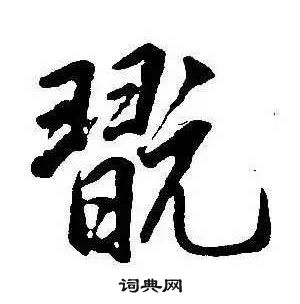 翫
词典网